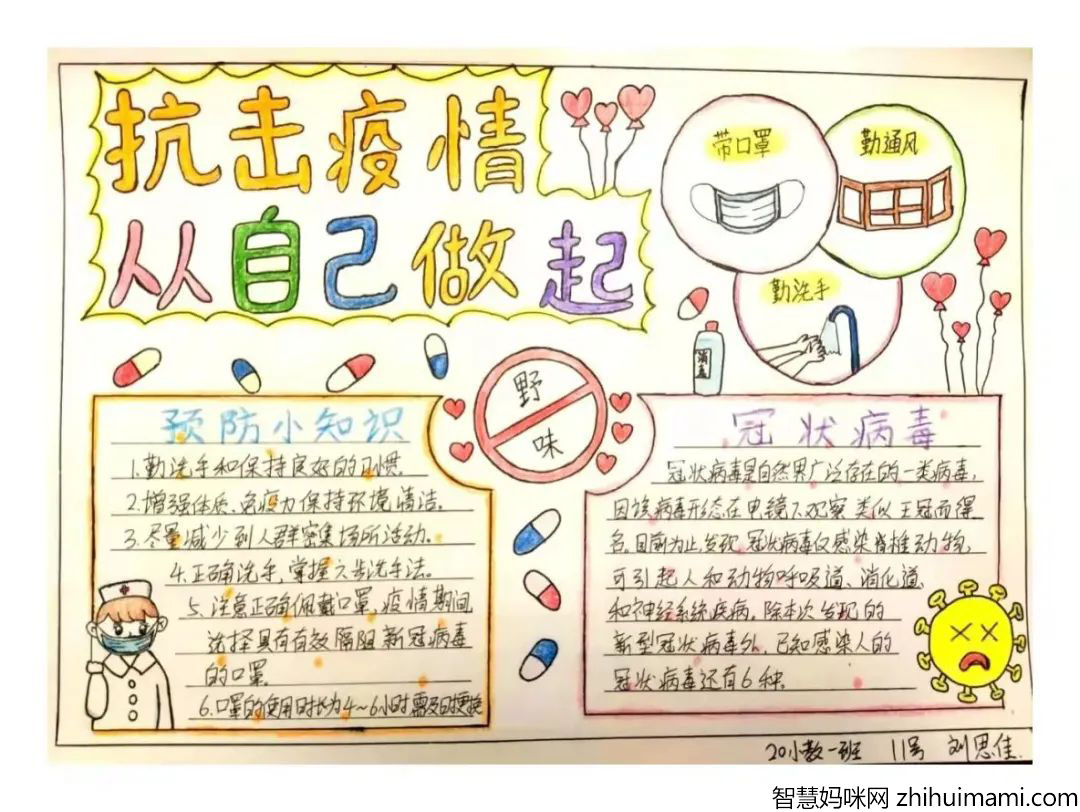 抗击疫情
从自己做起
带口罩
勤通风
勤洗手
消毒
野
味
预防小知识
1.勤洗手和保持良好的习惯.
2.增强体质、免疫力保持环境清洁。
3.尽量减少到人群密集场所活动。
4.正确洗手,掌握六步洗手法。
5、注意正确佩戴口罩,疫情期间
选择具有有效隔阻新冠病毒
的口罩.
6.口罩的使用时长为4~6小时需及时更换
冠状病毒
冠状病毒是自然界广泛存在的一类病毒,
因该病毒形态在电镜下观察类似王冠而得
名。目前为止,发现冠状病毒仅感染脊椎动物,
可引起人和动物呼吸道、消化道、
和神经系统疾病.除本次发现的
新型冠状病毒外,已知感染人的
冠状病毒还有6种。
20小教一班 11号 刘思佳.
智慧妈咪网 zhihuimami.com